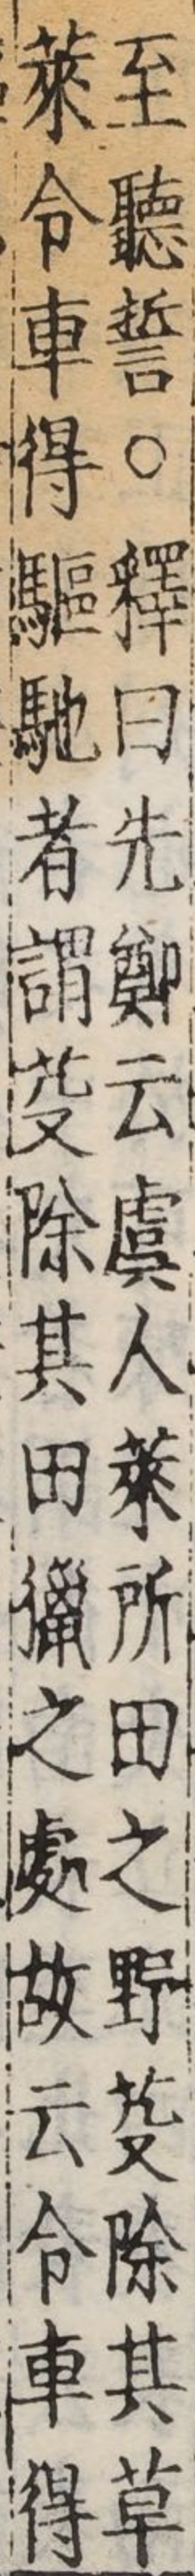 至聽誓○釋曰先鄭云虞人萊所田之野芟除其草
萊令車得驅馳者謂芟除其田獵之處故云令車得